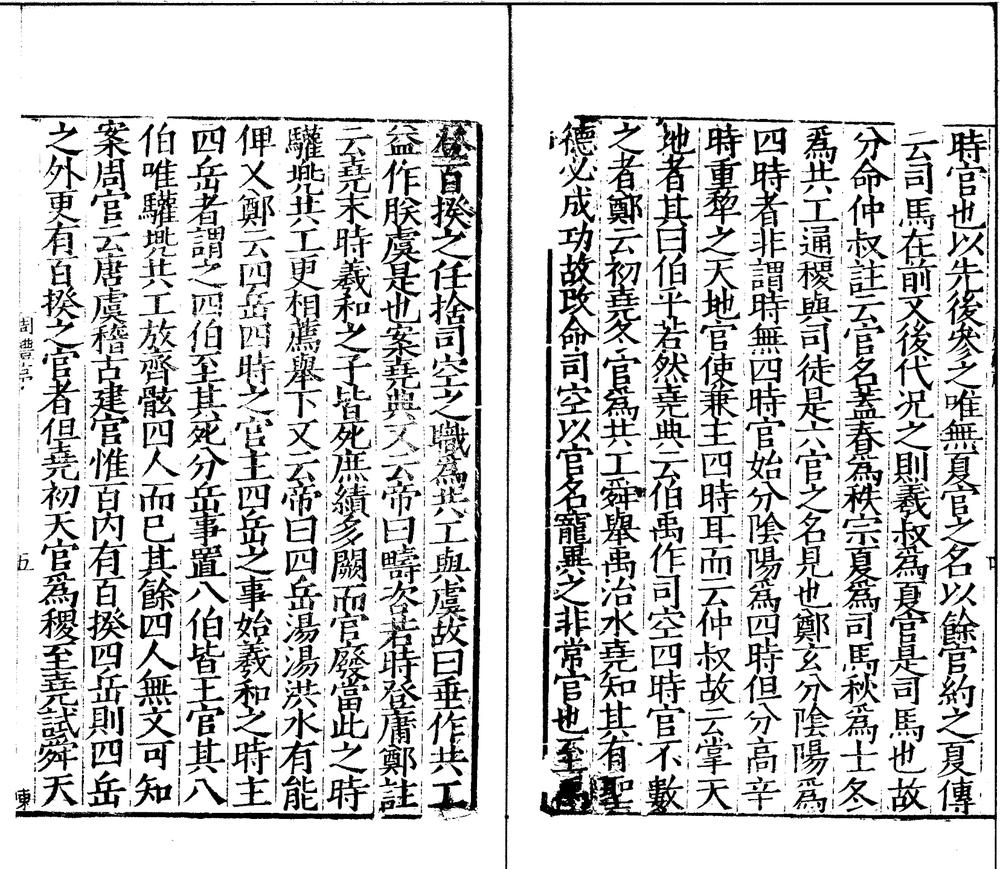 時官也以先後參之唯無夏官之名以餘官約之夏傳
云司馬在前又後代况之則羲叔爲夏官是司馬也故
分命仲叔註云官名蓋春爲秩宗夏爲司馬秋爲士冬
爲共工通稷與司徒是六官之名見也鄭玄分陰陽爲
四時者非謂時無四時官始分陰陽爲四時但分高辛
時重犂之天地官使兼主四時耳而云仲叔故云掌天
地者其曰伯乎若然堯典云伯禹作司空四時官不數
之者鄭云初堯冬官爲共工舜舉禹治水堯知其有聖
德必成功故改命司空以官名寵異之非常官也至禹
登百揆之任捨司空之職爲共工與虞故曰垂作共工
益作朕虞是也案堯典又云帝曰疇咨若時登庸鄭註
云堯末時羲和之子皆死庶績多闕而官廢當此之時
驩兠共工更相薦舉下又云帝曰四岳湯湯洪水有能
俾乂鄭云四岳四時之官主四岳之事始羲和之時主
四岳者謂之四伯至其死分岳事置八伯皆王官其八
伯唯驩兠共工放齊骸四人而已其餘四人無文可知
案周官云唐虞稽古建官惟百内有百揆四岳則四岳
之外更有百揆之官者但堯初天官爲稷至堯試舜天
周禮序
五